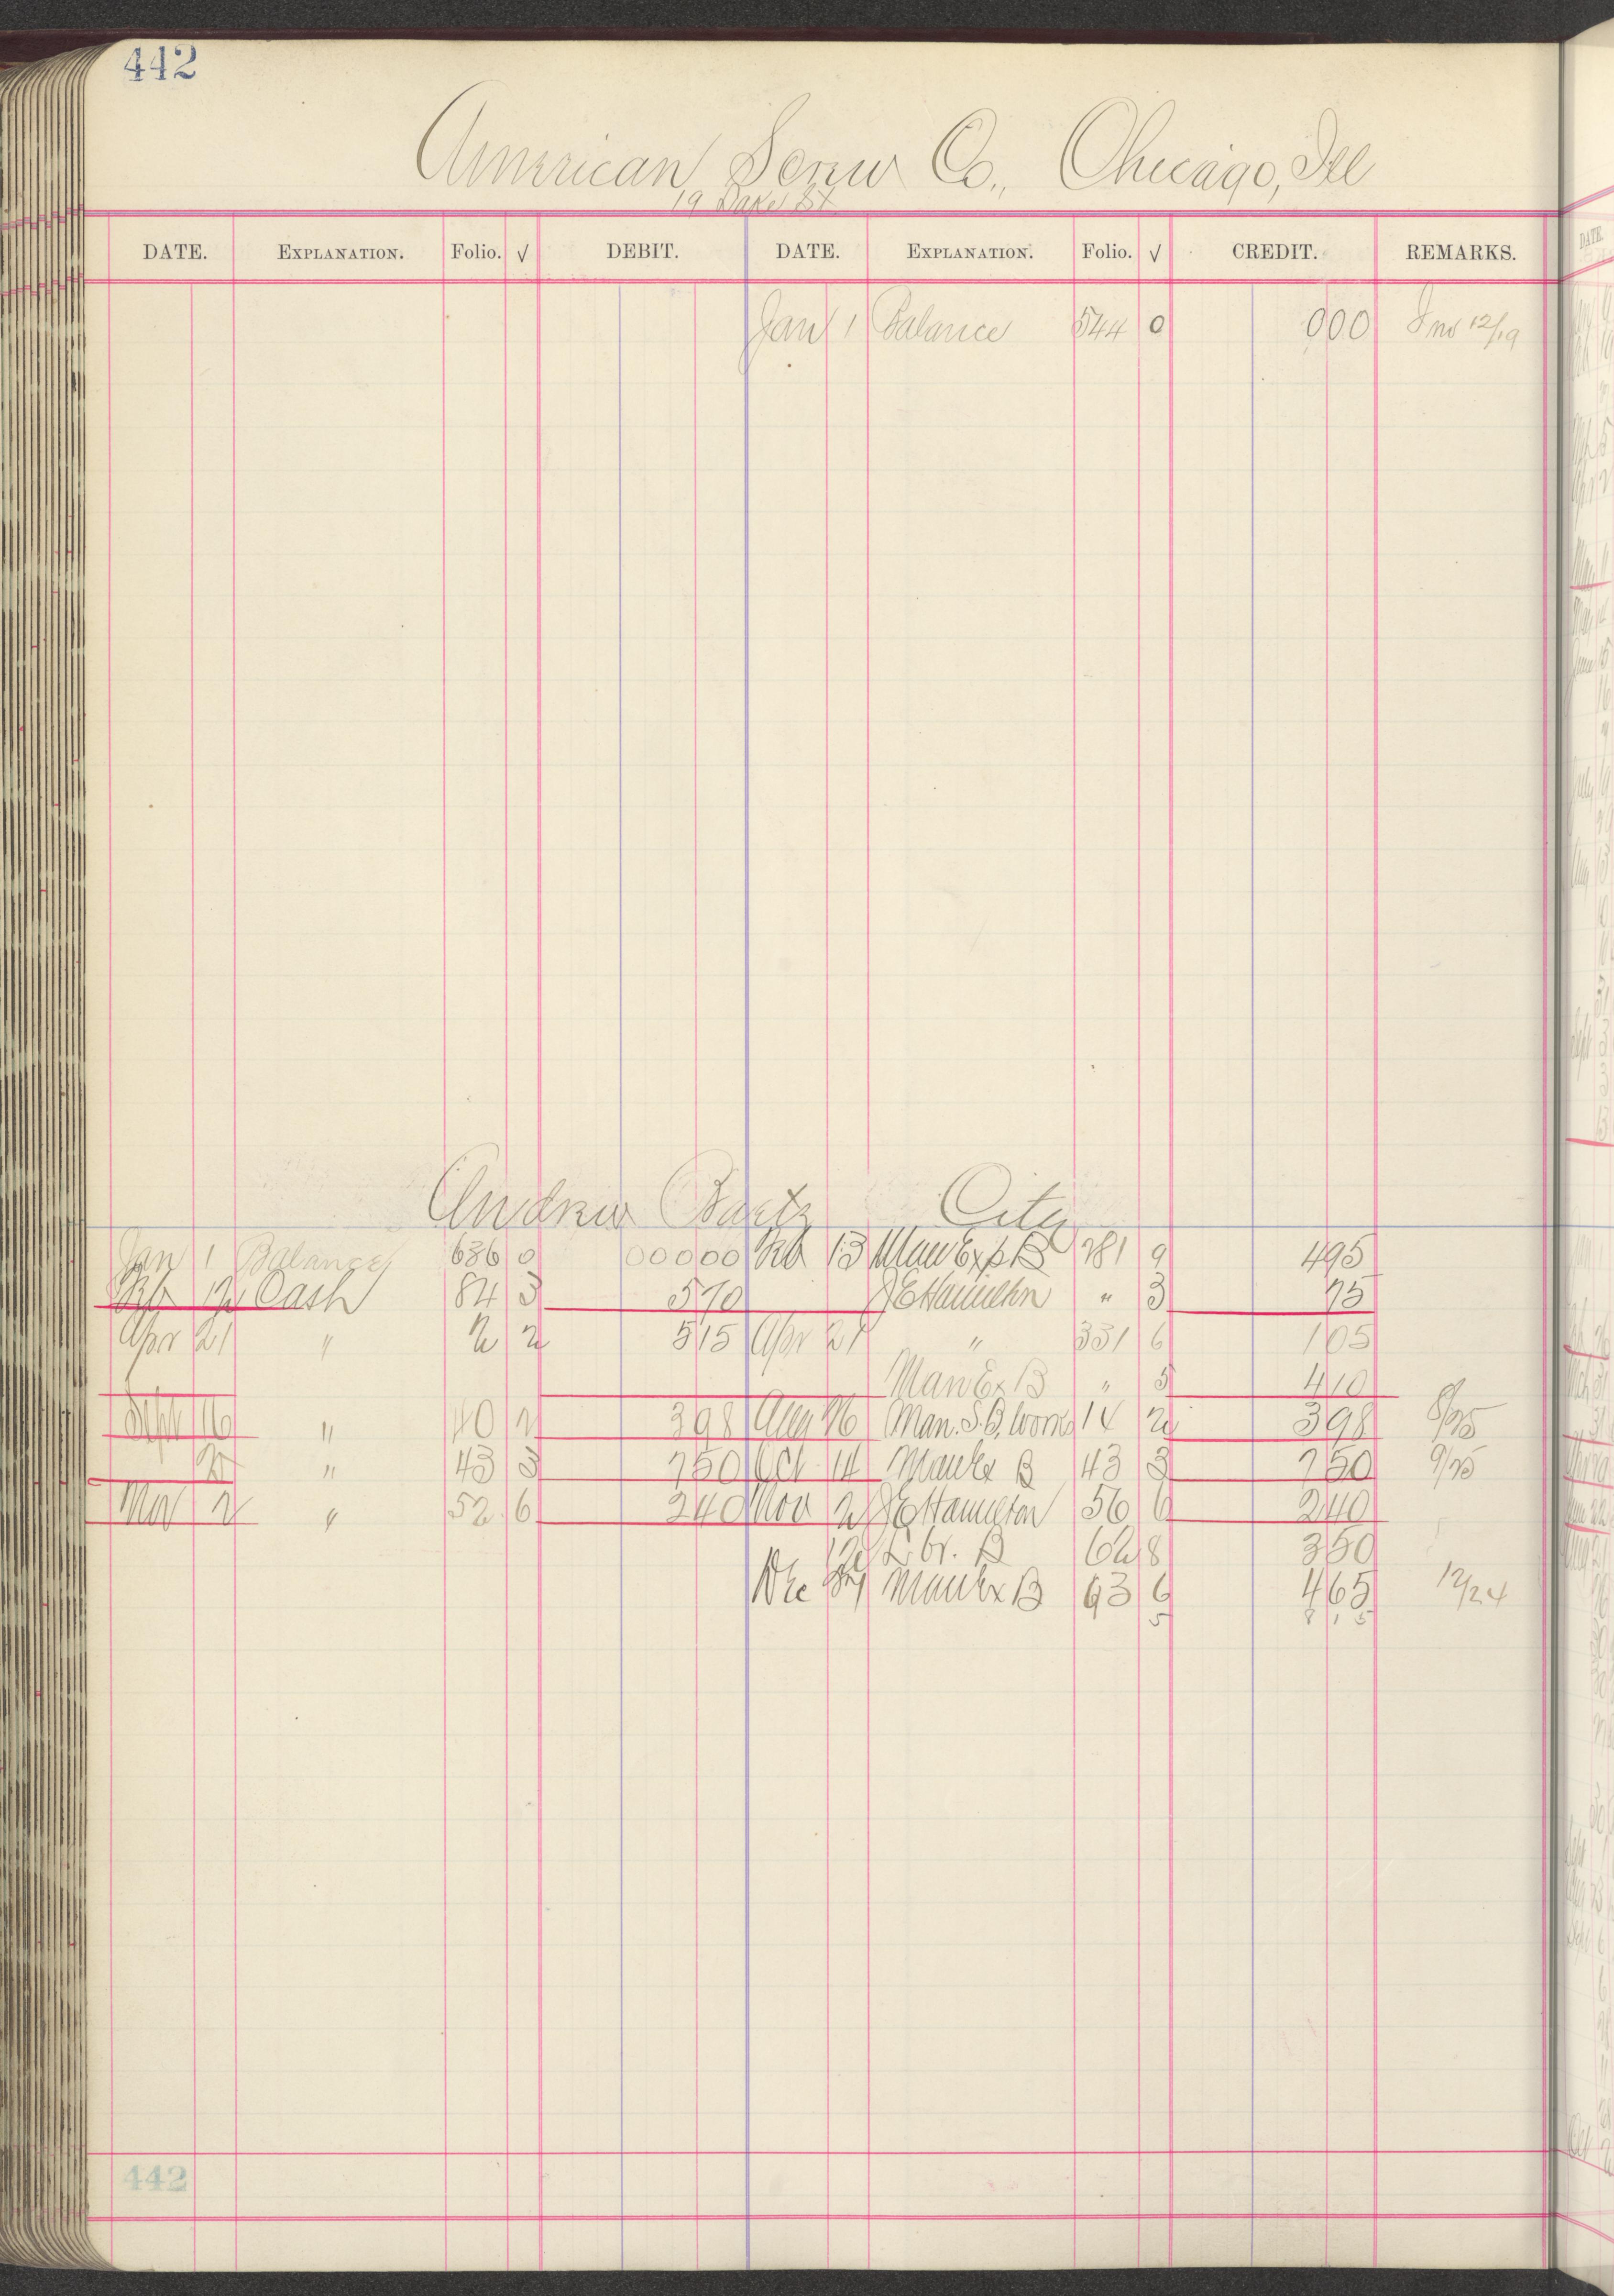 442
American Screw Co., Chicago, Ill
19 Lake St
DATE. EXPLANATION. Folio. √ DEBIT. DATE. EXPLANATION. Folio. √ CREDIT. REMARKS.
Jan 1 Balance 544 0 000 Inv 12/19
Andrew City
Jan 1 Balance 686 0 00000 Feb 13 Man Exp B 281 9 495
Feb Cash 84 3 570 " 3 75
Apr 21 " 2 2 515 Apr 21 " 331 6 105
Man Ex B " 5 410
Sept 16 " 10 2 398 Aug 16 Man. 14 2 398
" 43 3 750 Oct 14 Man Ex B 43 3 750 9/25
Nov 2 " 52 6 240 Nov 2 Hamilton 56 6 240
B 62 8 350
Dec Man Ex B 93 6 465 12/24
5 8 1 5
442